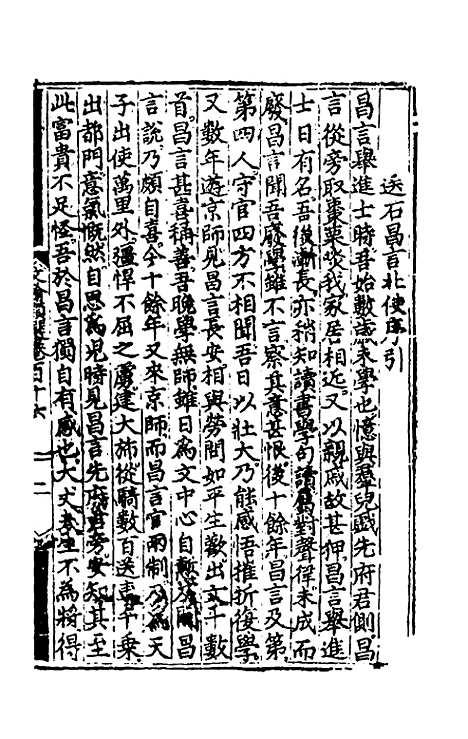 送石昌言北使序引
昌言舉進士時吾始數歲未學也憶與羣兒戲先府君側昌
言從旁取棗栗啖我家居相近又以親戚故甚狎昌言舉進
士日有名吾後漸長亦稍知讀書學句讀屬對聲律未成而
廢昌言聞吾廢學雖不言察其意甚恨後十餘年昌言及第
第四人守官四方不相聞吾日以壯大乃能感悟摧折復學
又數年遊京師見昌言長安相與勞問如平生歡出文十數
首昌言甚喜稱善吾晚學無師雖日為文中心自慚及聞昌
言說乃頗自喜今十餘年又來京師而昌言官兩制乃為天
子出使萬里外彊悍不屈之虜建大旆從騎數百送車千乘
出都門意氣慨然自思為兒時見昌言先府君旁安知其至
此富貴不足怪吾於昌言獨自有感也大丈夫生不為將得